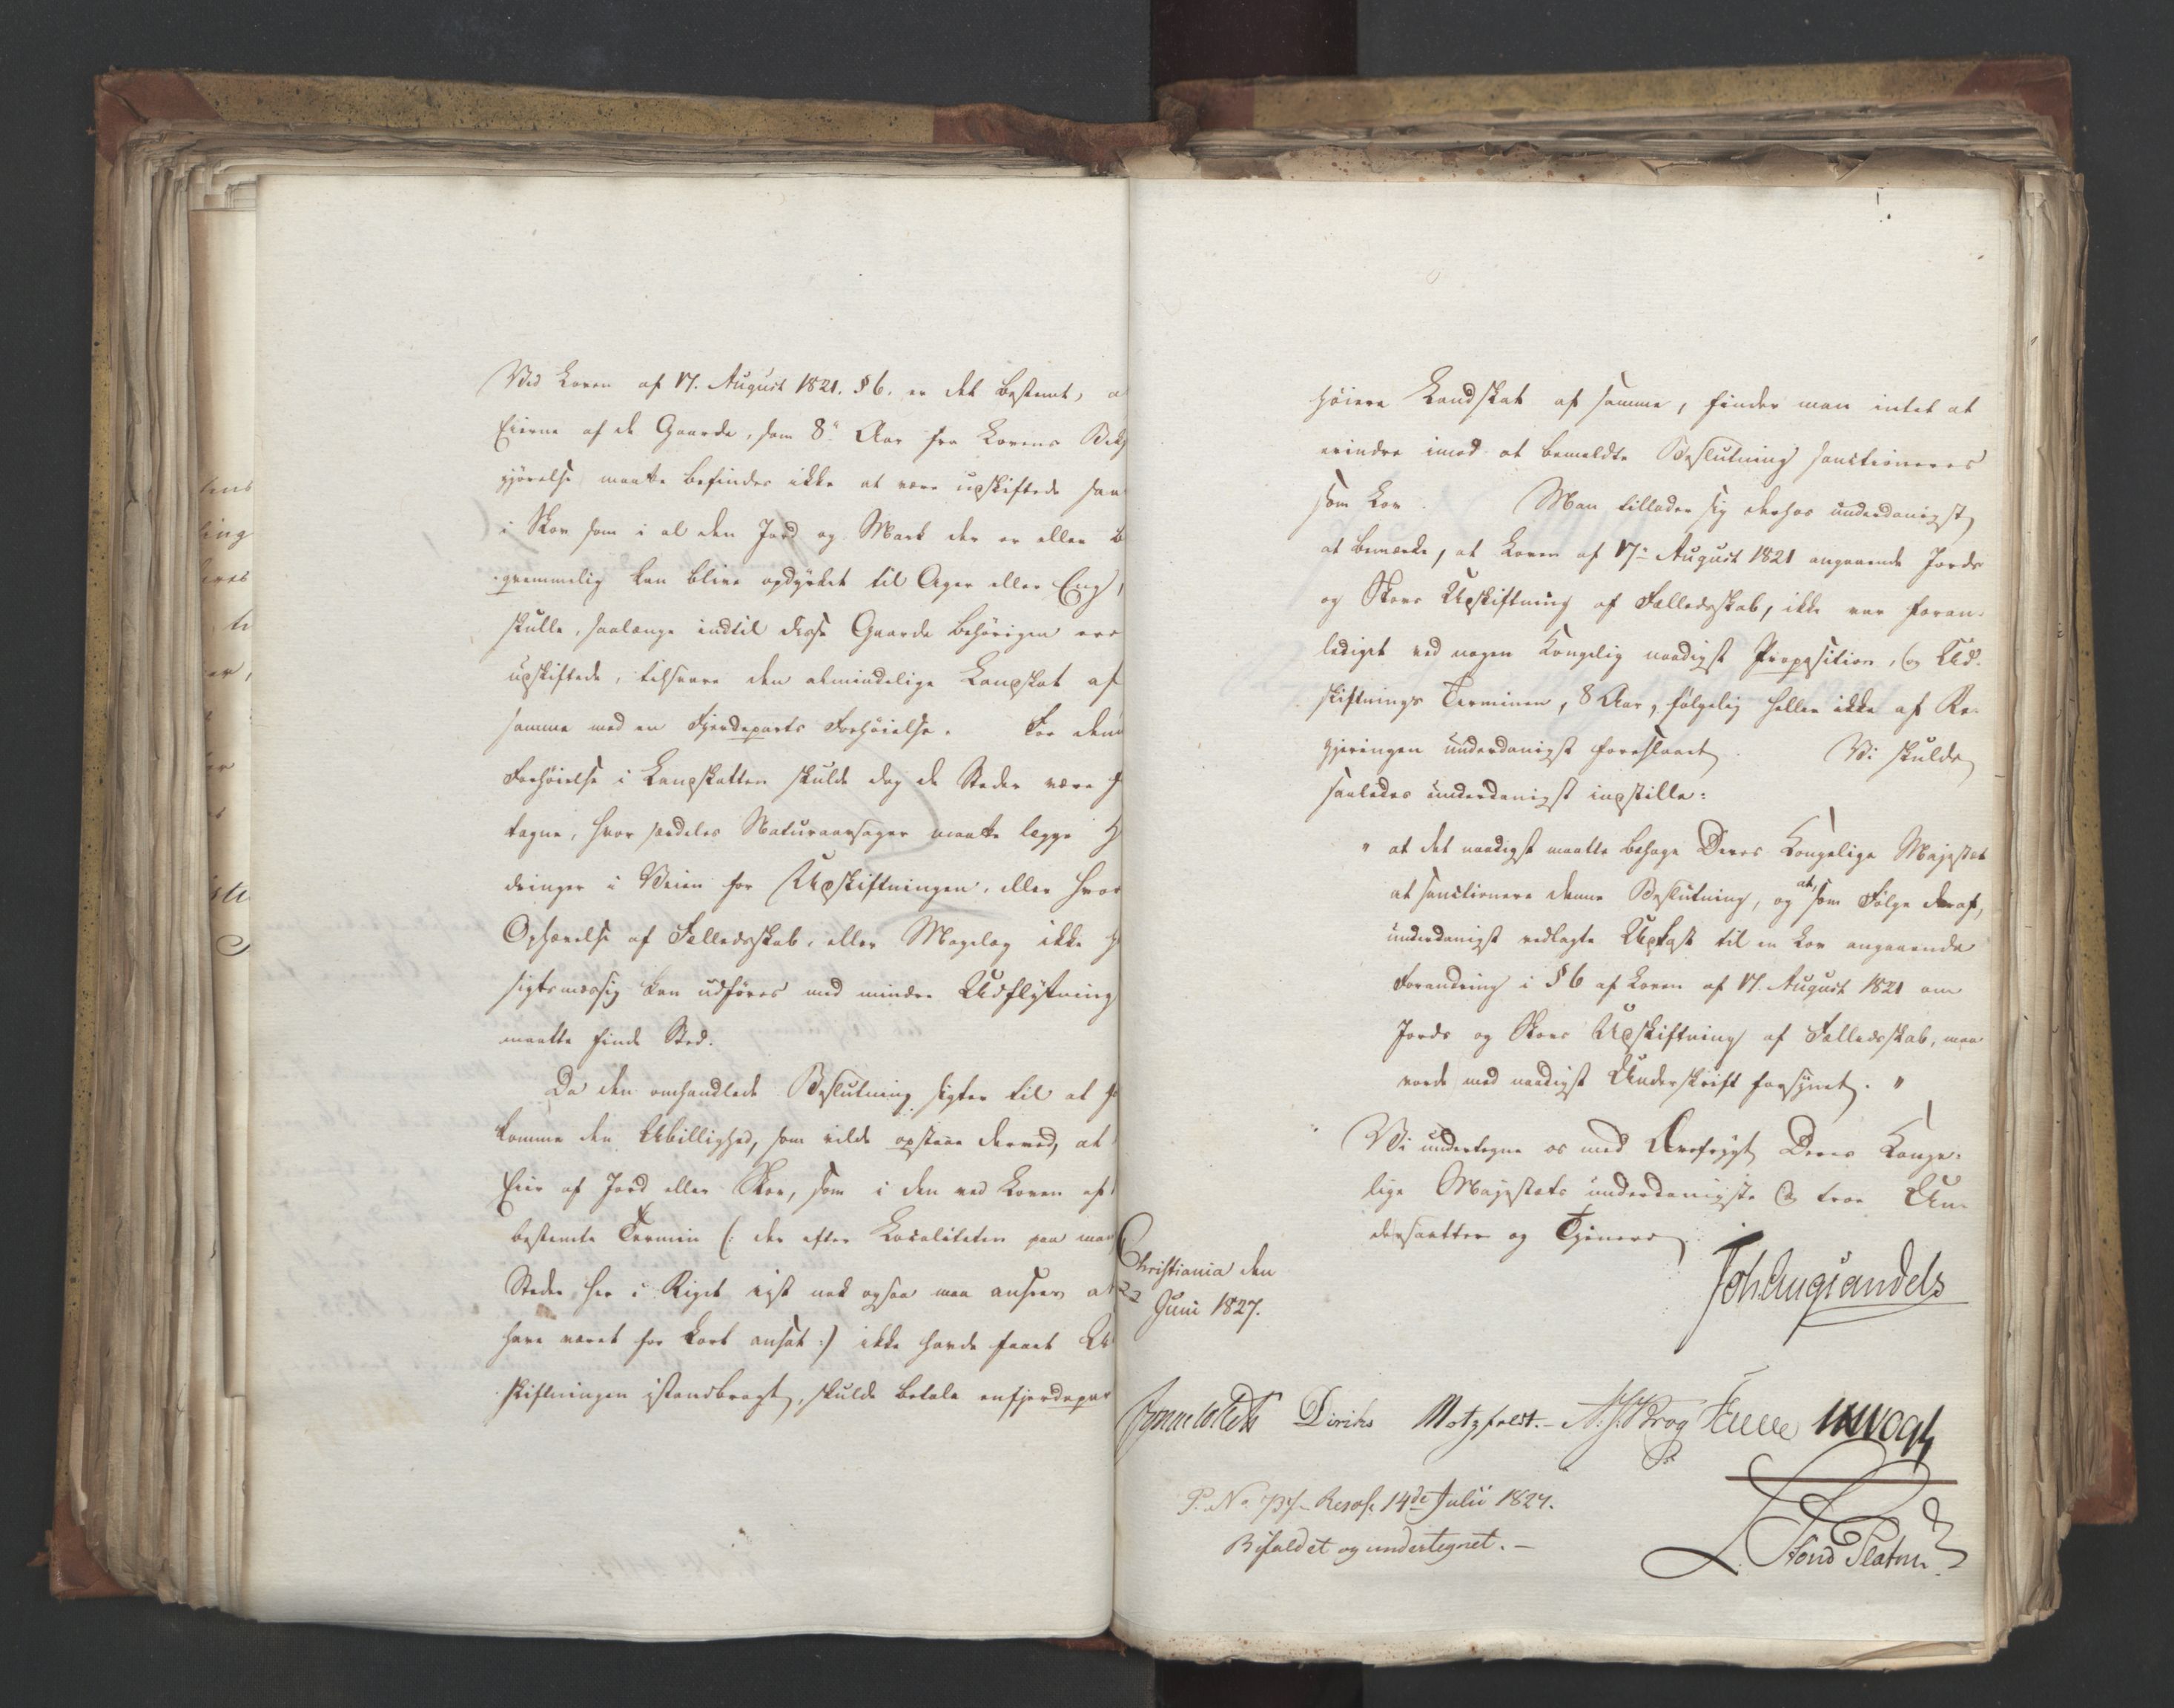 Ved Loven af 17. August 1821. §6. er det bestemt, a
Eierne af de Gaarde, som 8 Aar fra Lovens Bekj
gjørelse maatte befindes ikke at være udskiftede saa
i Skov som i al den Jord og Mark der er eller b
qvemmelig kan blive opdyrket til Ager eller Eng,
skulle, saalænge indtil disse Gaarde behørigen ere
udskiftede, tilsvare den almindelige Landskat af
samme med en Fjerdeparts Forhøielse. For denn
Forhøielse i Landskatten skulde dog de Steder være
tagne, hvor særdeles Naturaarsager maatte lægge H
dringer i Veien for Udskiftningen, eller hvor
Ophævelse af Fælledsskab, eller Magelæg ikke h
sigtsmæssig kan udføres med mindre Udflytning
maatte finde Sted.
Da den omhandlede Beslutning sigter til at
komme den Ubillighed, som vilde opstaae derved, at
Eier af Jord eller Skov, som i den ved Loven af
bestemte Termin (: der efter Localiteten paa man
Steder her i Riget vist nok ogsaa maa ansees at
have været for kort ansat :) ikke havde faaet Ud
skiftningen istandbragt, skulde betale en fjerdepar
høiere Landskat af samme, finder man intet at
erindre imod at bemeldte Beslutning sanctioneres
som Lov. Man tillader sig derhos underdanigst
at bemærke, at Loven af 17 August 1821 angaaende Jords
og Skovs Udskiftning af Fælledsskab, ikke var foran-
lediget ved nogen Kongelig naadigst Proposition, og Ud-
skiftnings Terminen, 8 Aar, følgelig heller ikke af Re-
gjeringen underdanigst foreslaaet. Vi skulde
saaledes underdanigst indstille:
" at det naadigst maatte behage Deres Kongelige Majestæt
at sanctionere denne Beslutning, og at som Følge deraf,
underdanigst vedlagte Udkast til en Lov angaaende
Forandring i §6 af Loven af 17. August 1821 om
Jords og Skovs Udskiftning af Fælledsskab, maa
vorde med naadigst Underskrift forsynet. "
Vi undertegne os med Ærefrygt Deres Konge-
lige Majestæts underdanigste og troe Un-
dersaatter og Tjenere
Christiania den
22 Juni 1827.
Joh Aug Sandels
Sommerhielm Diriks Motzfeldt. Krog Fasting JHVogt
P. No Resol. 14de Julii 1827.
Bifaldet og undertegnet. —